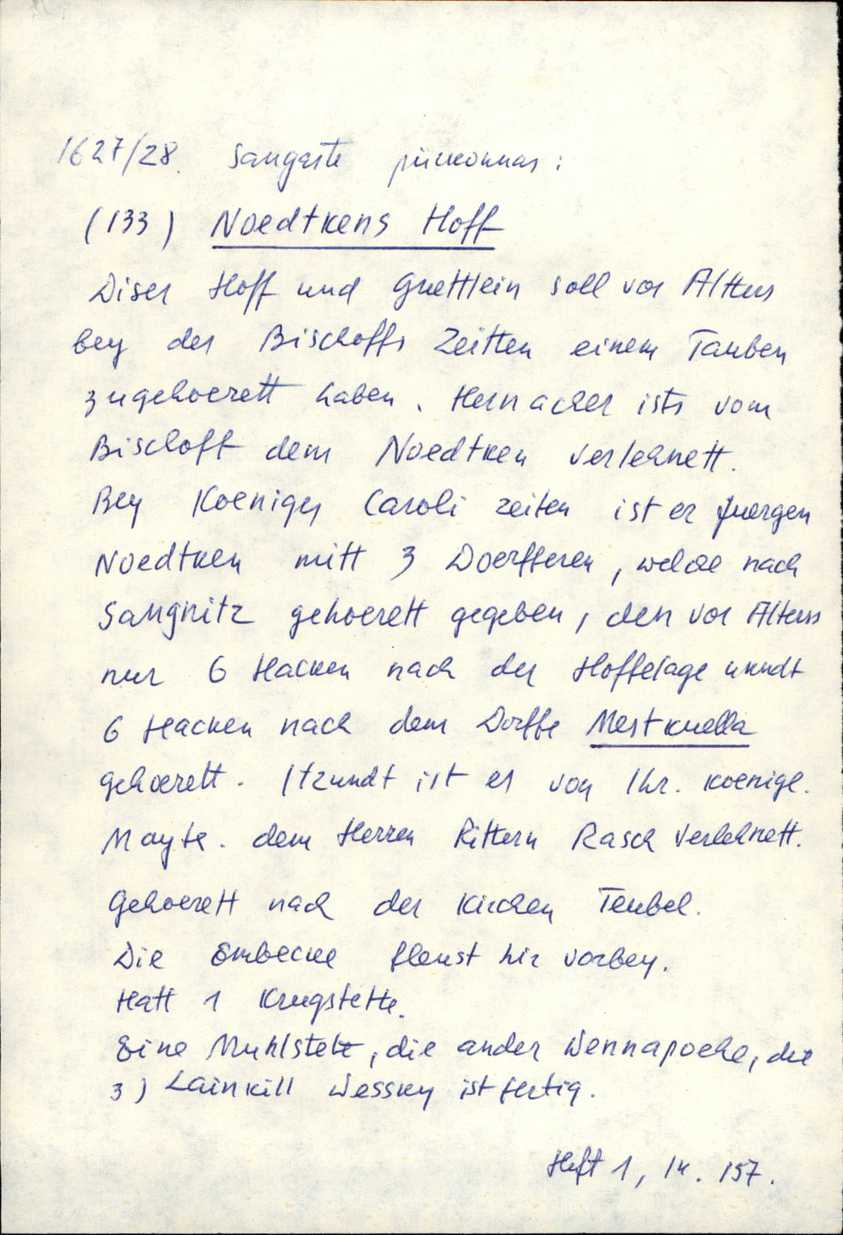 1627/28. Sangaste piirkonnas:
(133) Noedtkens Hoff
Diser Hoff und Guettlein soll vor Alters
bey des Bischoffs Zeitten einem Tauben
zugehoerett haben. Hernacher ists vom
Bischoff dem Noedtken verlehnett.
Bey Koeniges Caroli zeiten ist er Juergen
Noedtken mitt 3 Doerfferen, welche nach
Sangnitz gehoerett gegeben, den vor Alters
nur 6 Hacken nach der Hoffelage unndt
6 Hacken nach dem Dorffe Mestkuella
gehoerett. Itzundt ist er von Ihr. koenigl.
Mayte. dem Herren Rittern Rasch verlehnett.
Gehoerett nach der Kirchen Teubel.
Die Embecke fleust hir vorbey.
Hatt 1 Krugstette.
Eine Muhlstete, die ander Wennapoche, die
3) Lainkill Wessky ist fertig.
Heft 1, lk. 157.